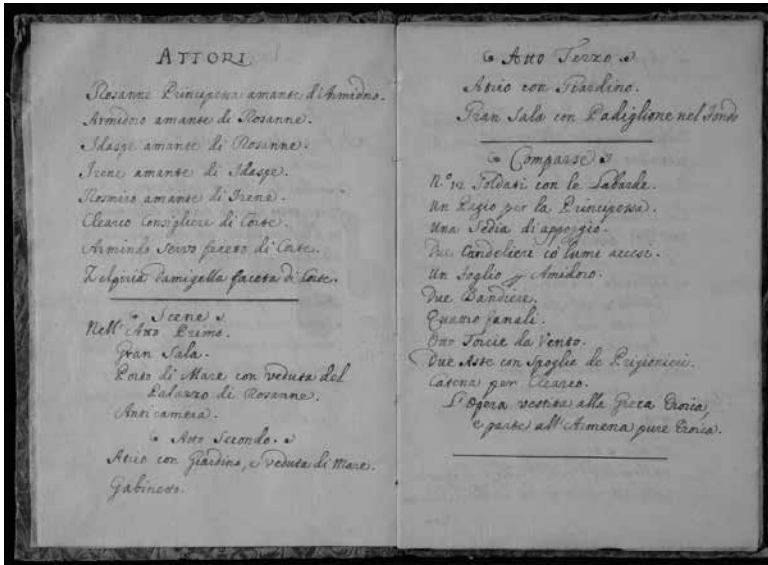 ATTORI
Rosanne Principessa amante d'Armidoro.
Armidoro amante di Rosanne.
Idaspe amante di Rosanne.
Irene amante di Idaspe.
Rosmiro amante di Irene.
Clearco Consigliere di Corte.
Armindo servo faceto di Corte.
Zelgiria Damigella faceta di Corte.
Scene
Nell'Atto Primo.
Gran Sala.
Porto di Mare con veduta del
Palazzo di Rosanne.
Anticamera.
Atto Secondo.
Atrio con Giardino, e veduta di Mare.
Gabinetto.
Atto Terzo
Atrio con Giardino.
Gran Sala con Padiglione nel Fondo
Comparse
N.º 12 Soldati con le Labarde.
Un Pagio per la Principessa.
Una Sedia di appoggio.
Due Candeliere co' lumi accesi.
Un foglio p Amidoro.
Due Bandiere.
Quattro fanali.
Due Torcie da Vento.
Due Aste con Spoglie de Prigionieri.
Catena per Clearco.
L'Opera vestita alla Greca Eroica,
e parte all'Armena pure Eroica.